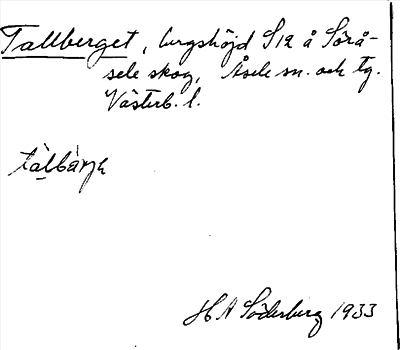 Tallberget, bergshöjd S12 å Sörå-
sele skog, Åsele sn. och tg.
Västerb. l.
tàlbàrje
H A Söderberg 1933